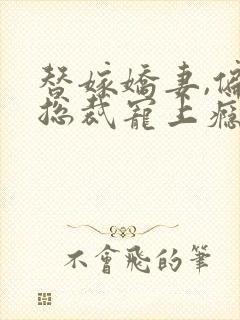 替嫁嬌妻,偏
總裁寵上癮
不會飛的筆